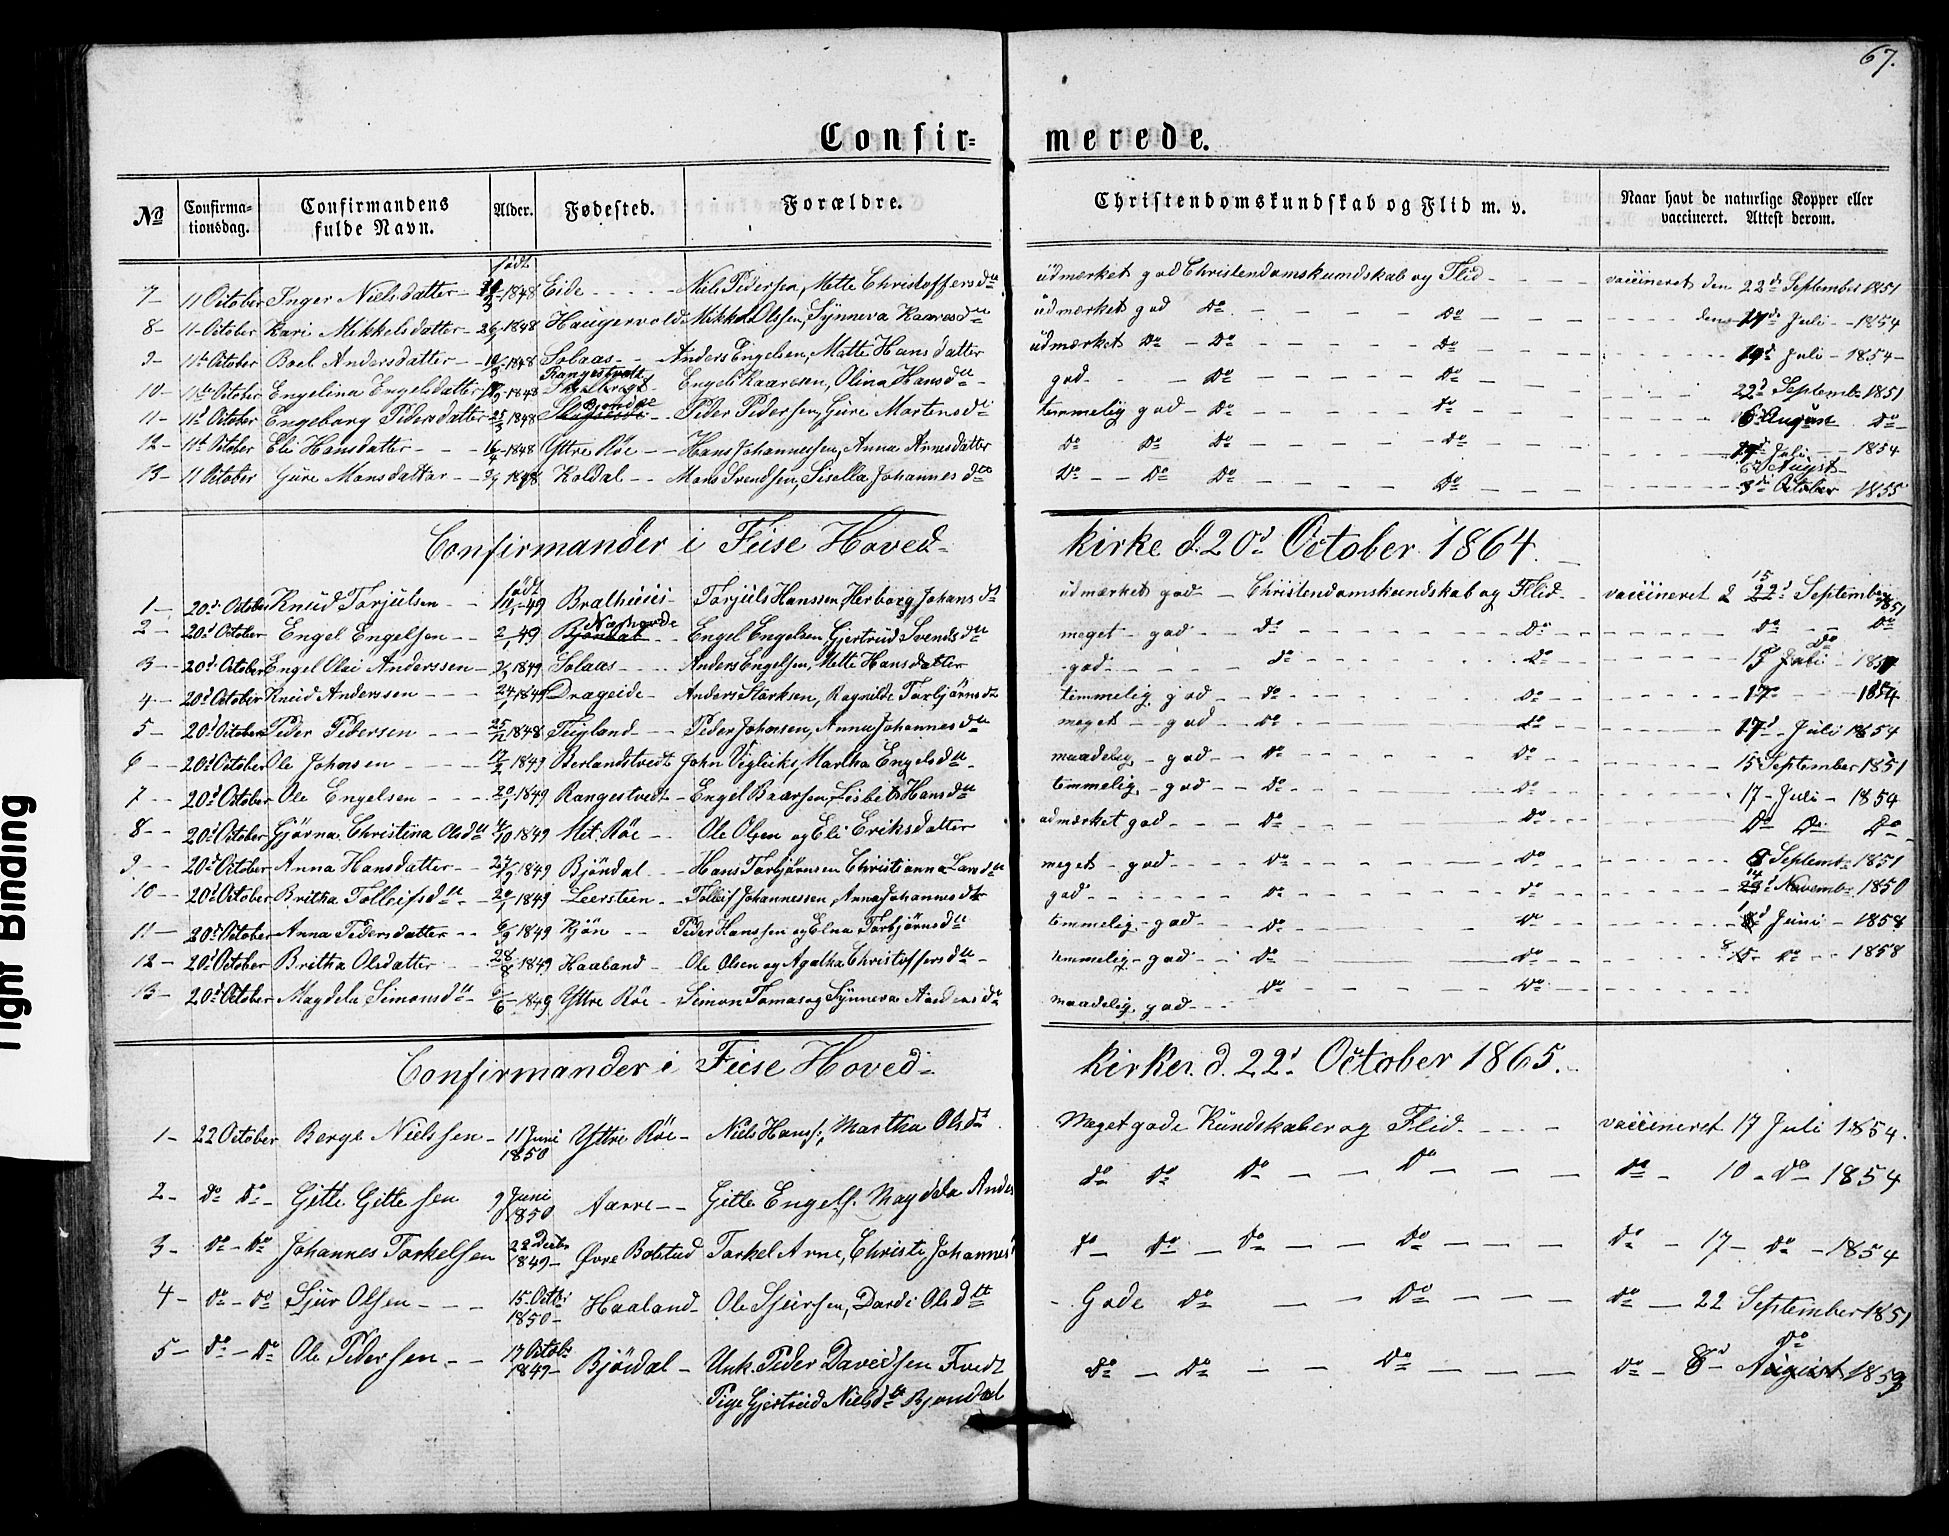 67.
Confir- merede.
No Confirma-tionsdag. Confirmandens fulde Navn. Alder. Fødested. Forældre. Christendomskundskab og Flid m. v. Naar havt de naturlige Kopper eller vaccineret. Attest derom.
født
7 - 11 October Inger Nielsdatter - 1848 Eide - - - - Niels Pedersen, Mette Christoffersdtr udmærket god Christendomskundskab og Flid - - - - vaccineret den 22de September 1851
8 - 11- October Kari Mikkelsdatter - 1848 Haugervold Mikkel Olssen, Synneva Kaaresdtr udmærket god Do - - - - Do - - - den 17de Juli - 1854
9 - 11te October Boel Andersdatter - 1848 Solaas - - Anders Engelsen, Mette Hansdatter udmærket Do - Do - - - Do - - - 19d Juli - 1854 -
Rangestvedt
10 - 11te October Engelina Engelsdatter 1848 Engel Kaaresen, Olina Hansdtr - god - - - Do - - - Do - - - 22d Septemb. 1851
Bjondal
11 - 11d October Engeborg Pedersdatter 25/3 1848 Peder Pedersen, Gure Martensdtr temmelig god - Do - - - Do - - - 6d August Do
12 - 11te October Eli Hansdatter - - 16/4 1848 Yttre Röe - - Hans Johannessen, Anna Arnesdatter Do Do Do - - - Do - - - 19d Juli - 1854
6d Augst
13 - 11 October Gure Monsdatter - - 1848 Koldal - - Mons Svendsen, Sisella Johannesdtr Do - - Do Do - - - Do - - - 3d October 1855
Confirmander i Fuse Hoved- kirke d. 20d October 1864.
født 15
1 - 20d October Knud Torjulsen - - -49 Bralhuus - Torjuls Hanssen Herborg Johansdt udmærket god - Christendomskundskab og Flid - vaccineret d 22d September 1851
2 - 20d October Engel Engelsen - - 2/1 49 Bjondal Engel Engelsen Gjertrud Svendsdtr meget - god - Do - - - Do - - - Do Do
Do
3 - 20d October Engel Olai Anderssen - 1849 Solaas - - - Anders Engelsen, Mette Hansdatter god - - - - Do - - - Do - - - Juli - 1854
4 - 20d October Knud Anderssen - - - 24/1 1849 Drageide - Anders Starksen, Ragnilde Torbjørnsdt temmelig god - Do - - - Do - - - 17 - 1854
5 - 20d October Peder Pedersen - - - 25/12 1848 Teigland - - Peder Johnsen, Anna Johannesdtr meget - - god - Do - - - Do - - - 17d - Juli 1854
6 - 20d October Ole Johnsen - - - 17/2 1849 Berlandstvedt John Vigleiks, Martha Engelsdtr - maadelig - god - Do - - - Do - - - 15 September 1851
7 - 20d October Ole Engelsen - - - 20/1 1849 Rangestvedt - Engel Baarsen, Lisbet Hansdtr temmelig - god - - Do - - - Do - - - 17 - Juli - 1854
8 - - 20d October Gjørna Christina Olsdtr 4/10 1849 Mit. Röe - - Ole Olsen og Eli Eriksdatter udmærket god - - - Do - - - Do - - - Do Do Do
9 - - 20d October Anna Hansdatter - - 1849 Bjöndal - - Hans Torbjørnsen Christianna Larsdtr meget - god - - - - Do - - - Do - - - 8 Septemb - 1851
14
10 - - 20d October Britha Tolleifsdtr - 1849 Leersteen - Tolleif Johannessen, Anna Johannesdtr god - - - - - Do - - - Do - - - 29d Novemb - 1850
11 - 20d October Anna Pedersdatter - - 6/9 1849 Kjön - - Peder Hanssen og Elna Torbjørnsdtr temmelig - god - - - Do - - - Do - - - Juni - 1858
12 - 20d October Britha Olsdatter - 28/8 1849 Haaland - Ole Olsen og Agatha Christoffersdtr - temmelig - god - - - Do - - - Do - - - 15 - Do - - 1858
13 - 20d October Magdela Simonsdtr 6/6 - 1849 Yttre Röe - Simon Tomas og Synneva Andersdtr maadelig god - - - Do - - - Do - - -
Confirmander i Fuse Hoved- kirker. d. 22d October 1865.
1 - 22 October Berge Nielssen - 11 Juni 1850 Yttre Röe - Niels Hanss, Martha Olsdt Meget gode Kundskaber og Flid - - - - vaccineret 17 Juli 1854.
2 - Do Do - Gitle Gitlesen 9 Juni 1850 Aarre - - Gitle Engels. Magdela Anders Do Do Do - - Do - - - Do - 10 - Do - 1854
3 - Do - Do Johannes Torkelsen 22 Decbr 1849 - Øvre Bolstad Torkel Arne, Christi Johannes Do - Do - Do - - Do - - - Do - 17 - Do - 1854
4 - Do - Do Sjur Olsen - - - 15 Octbr 1850 - Haaland - Ole Sjursen, Dardi Olsdtr - Gode Do - - Do - - - Do - 22 September 1851
Do
5 - Do - Do Ole Pedersen - - 17 Octobr 1849 - Bjöndal - Unk. Peder Davidsen Tvedt Do - Do - - - Do - - - Do - 8d - August 1853
Pige Gjertrud Nielsdtr Bjondal
Tight Binding